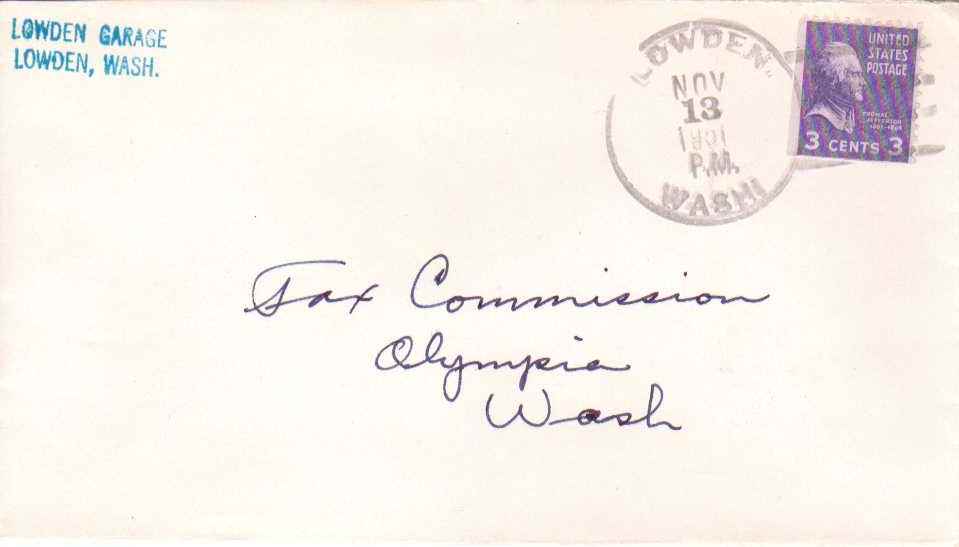 LOWDEN GARAGE
LOWDEN, WASH.
LOWDEN,
NOV
13
P.M.
WASH
UNITED
STATES
POSTAGE
THOMAS
JEFFERSON
1801-1809
3 CENTS 3
Tax Commission
Olympia
Wash